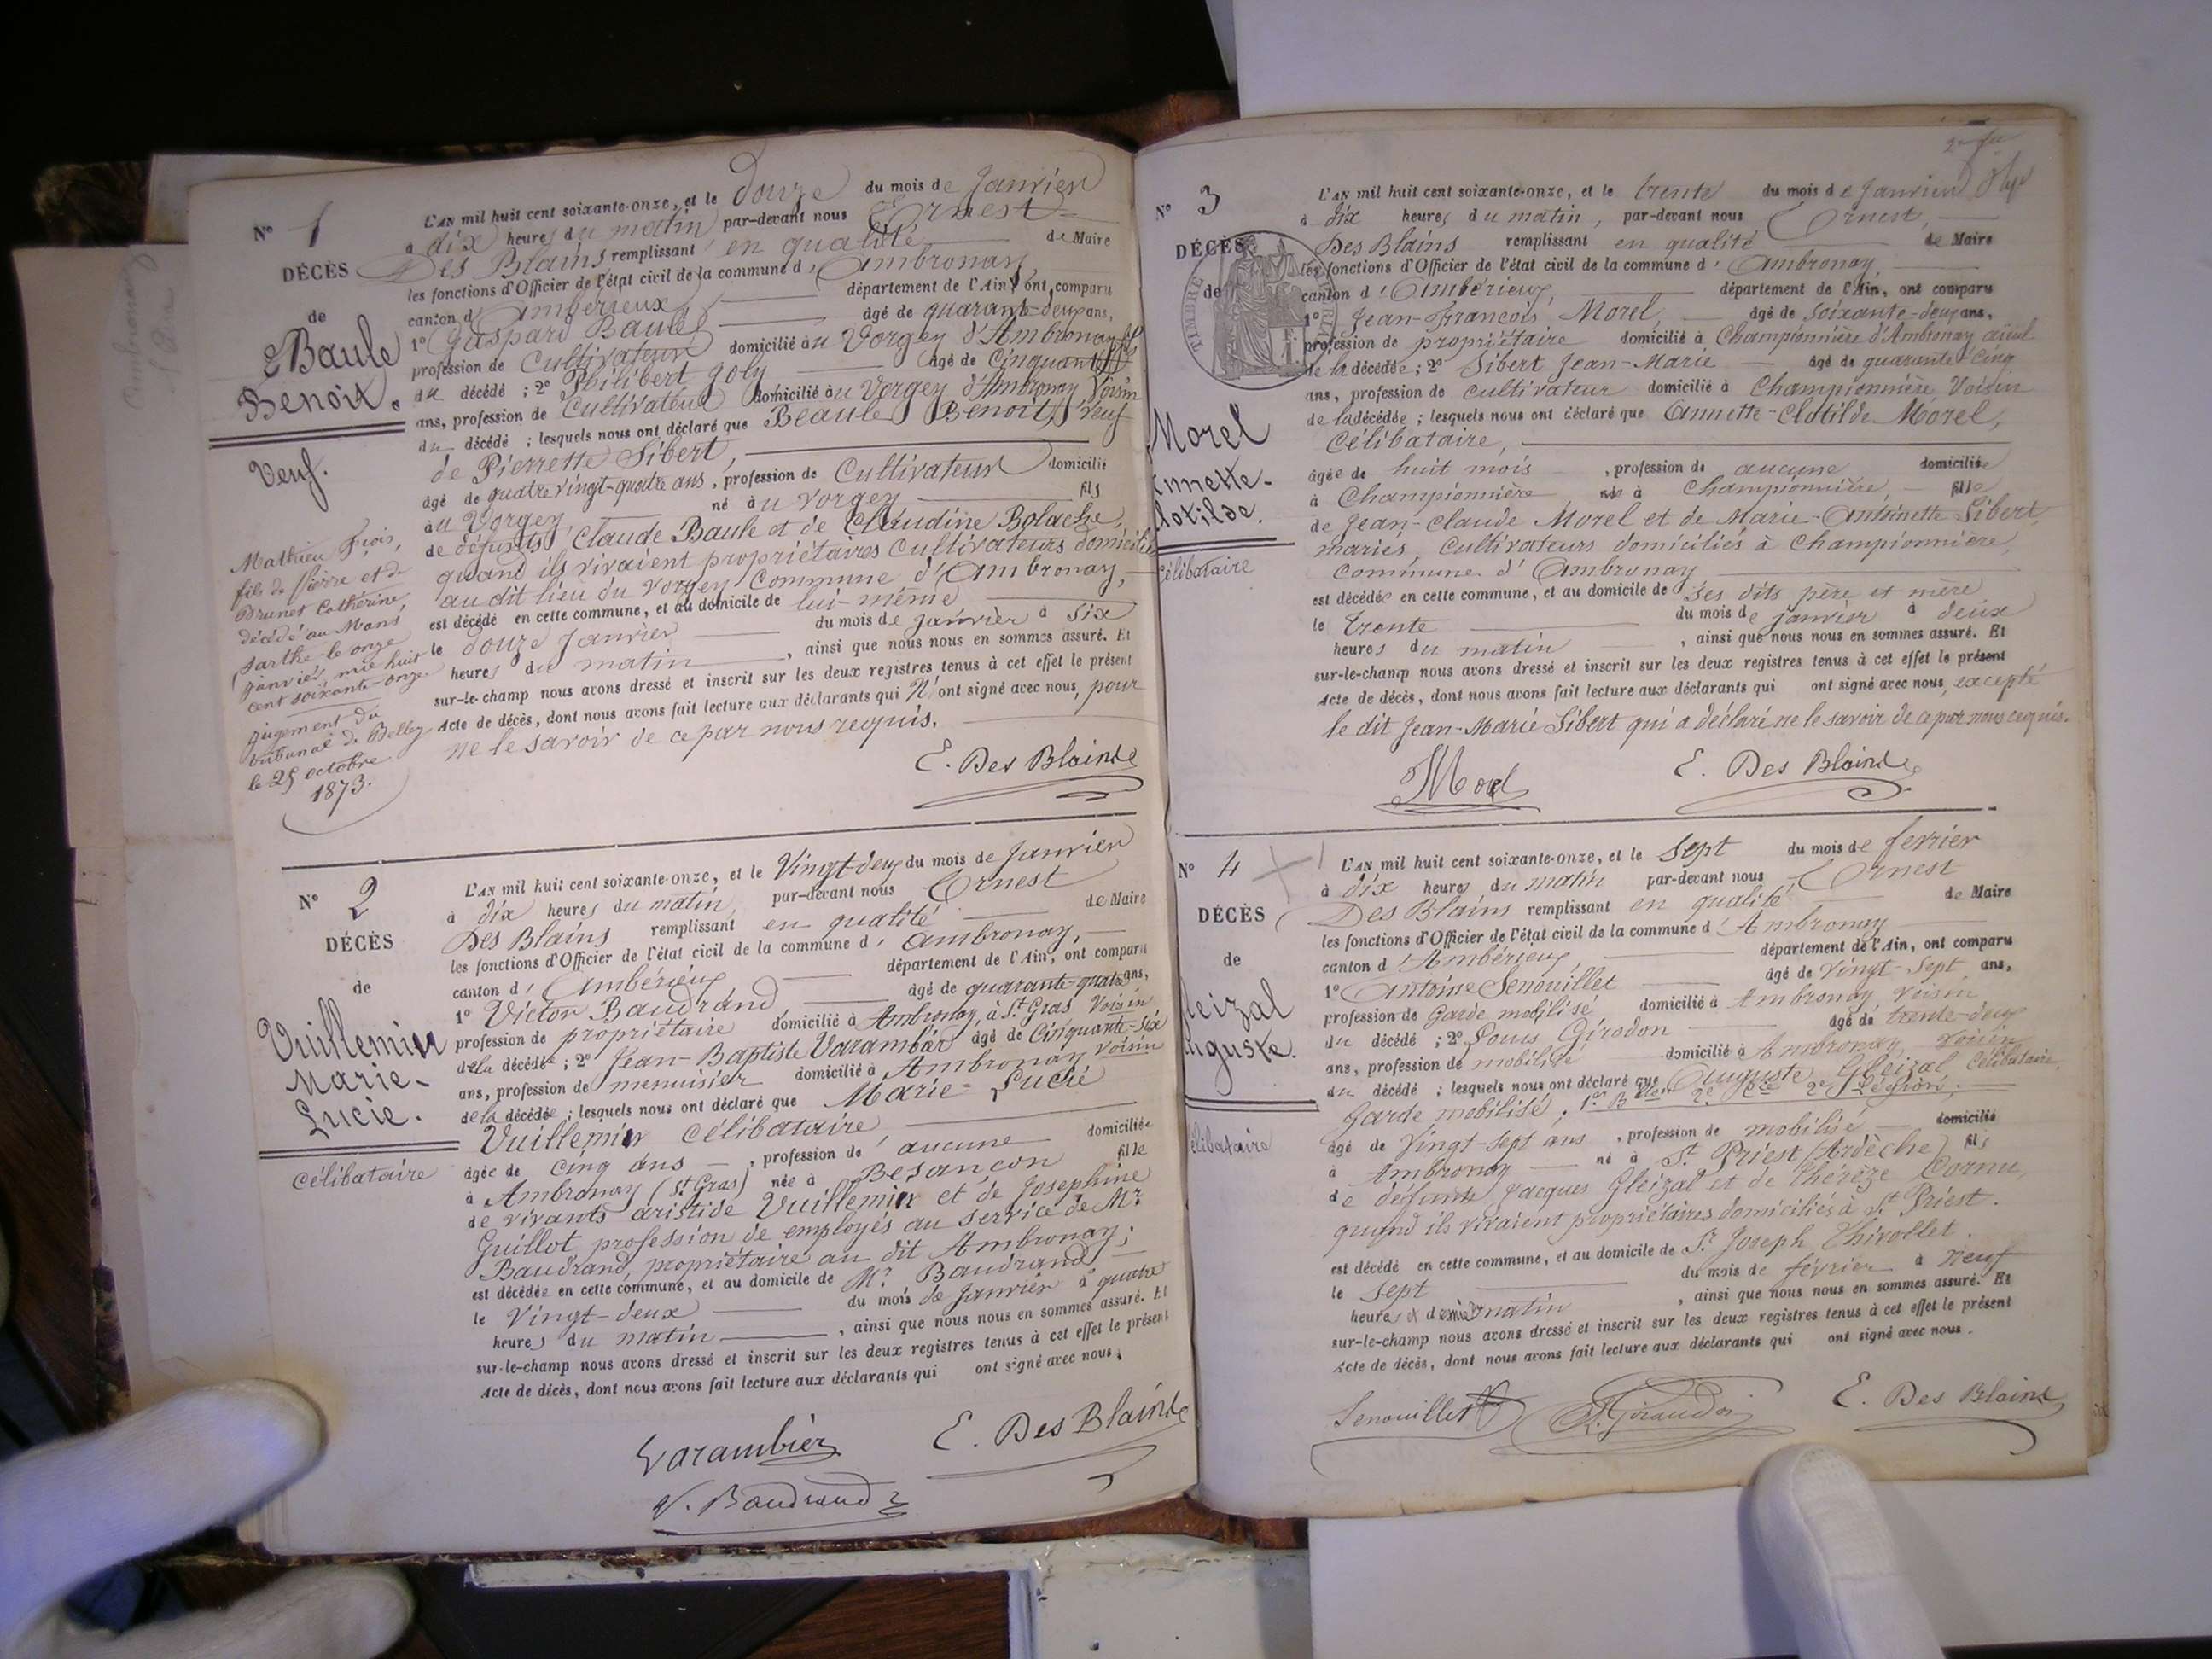 N° 1
DÉCÈS
de
Baule
Benoit.
Veuf.
Mathieu
fils de Pierre et de
Brunet Catherine,
décédé au Mans,
Sarthe le onze
janvier, mil huit
cent soixante-onze
jugement du
tribunal de Belley
le 25 octobre
1873.
L'AN mil huit cent soixante-onze, et le Douze du mois de Janvier
à dix heures du matin par-devant nous Ernest
Des Blains remplissant en qualité de Maire
les fonctions d'Officier de l'état civil de la commune d'Ambronay
canton d'Ambérieux département de l'Ain, ont comparu
1° Gaspard Baule âgé de quarante-deux ans,
profession de Cultivateur domicilié au Vorgey d'Ambronay fils
du décédé ; 2° Philibert Joly âgé de Cinquante
ans, profession de Cultivateur domicilié au Vorgey d'Ambronay Voisin
du décédé ; lesquels nous ont déclaré que Beaule Benoit, veuf
de Pierrette Sibert,
âgé de quatre vingt-quatre ans, profession de Cultivateur domicilié
au Vorgey né au Vorgey fils
de défunts Claude Baule et de Claudine Bolache,
quand ils vivaient propriétaires Cultivateurs domiciliés
au dit lieu du Vorgey Commune d'Ambronay,
est décédé en cette commune, et au domicile de lui-même
le douze Janvier du mois de janvier à six
heures du matin, ainsi que nous nous en sommes assuré. Et
sur-le-champ nous avons dressé et inscrit sur les deux registres tenus à cet effet le présent
Acte de décès, dont nous avons fait lecture aux déclarants qui N'ont signé avec nous, pour
ne le savoir de ce par nous requis.
E. Des Blains
N° 2
DÉCÈS
de
Vuillemin
Marie-
Lucie.
Célibataire
L'AN mil huit cent soixante-onze, et le Vingt-deux du mois de Janvier
à dix heures du matin par-devant nous Ernest
Des Blains remplissant en qualité de Maire
les fonctions d'Officier de l'état civil de la commune d'Ambronay,
canton d'Ambérieux département de l'Ain, ont comparu
1° Victor Baudrand âgé de quarante-quatre ans,
profession de propriétaire domicilié à Ambronay, à St Gras Voisin
de la décédée ; 2° Jean-Baptiste Varambier âgé de Cinquante-six
ans, profession de menuisier domicilié à Ambronay voisin
de la décédée ; lesquels nous ont déclaré que Marie-Lucie
Vuillemin Célibataire,
âgée de Cinq ans, profession de aucune domiciliée
à Ambronay (St Gras) née à Besançon fille
de vivants Aristide Vuillemin et de Josephine
Guillot profession de employés au service de Mr
Baudrand, propriétaire au dit Ambronay;
est décédée en cette commune, et au domicile de Mr Baudrand
le Vingt-deux du mois de janvier à quatre
heures du matin, ainsi que nous nous en sommes assuré. Et
sur-le-champ nous avons dressé et inscrit sur les deux registres tenus à cet effet le présent
Acte de décès, dont nous avons fait lecture aux déclarants qui ont signé avec nous.
Varambier E. Des Blains
V. Baudrand
N° 3
DÉCÈS
de
Morel
Annette-
Clotilde.
Célibataire
TIMBRE
L'AN mil huit cent soixante-onze, et le trente du mois de Janvier
à dix heures du matin, par-devant nous Ernest,
Des Blains remplissant en qualité de Maire
les fonctions d'Officier de l'état civil de la commune d'Ambronay
canton d'Ambérieux, département de l'Ain, ont comparu
1° Jean-François Morel, âgé de soixante-deux ans,
profession de propriétaire domicilié à Championnière d'Ambronay aïeul
de la décédée ; 2° Sibert Jean-Marie âgé de quarante Cinq
ans, profession de cultivateur domicilié à Championnière Voisin
de la décédée ; lesquels nous ont déclaré que Annette-Clotilde Morel,
Célibataire,
âgée de huit mois, profession de aucune domiciliée
à Championnière née à Championnière, fille
de Jean-Claude Morel et de Marie-Antoinette Sibert,
mariés, Cultivateurs domiciliés à Championnière,
Commune d'Ambronay
est décédée en cette commune, et au domicile de ses dits père et mère
le trente du mois de janvier à deux
heures du matin, ainsi que nous nous en sommes assuré. Et
sur-le-champ nous avons dressé et inscrit sur les deux registres tenus à cet effet le présent
Acte de décès, dont nous avons fait lecture aux déclarants qui ont signé avec nous, excepté
le dit Jean-Marie Sibert qui a déclaré ne le savoir de ce par nous requis.
Morel E. Des Blains
N° 4
DÉCÈS
de
Gleizal
Auguste.
Célibataire
L'AN mil huit cent soixante-onze, et le Sept du mois de fevrier
à dix heures du matin par-devant nous Ernest
Des Blains remplissant en qualité de Maire
les fonctions d'Officier de l'état civil de la commune d'Ambronay
canton d'Ambérieux département de l'Ain, ont comparu
1° Antoine Senouillet âgé de Vingt-Sept ans,
profession de Garde mobilisé domicilié à Ambronay, voisin
du décédé ; 2° Louis Girodon âgé de trente-deux
ans, profession de mobilisé domicilié à Ambronay, voisin
du décédé ; lesquels nous ont déclaré que Auguste Gleizal Célibataire,
Garde mobilisé, 1er Bton 2e Cie 2e Légion,
âgé de Vingt-Sept ans, profession de mobilisé domicilié
à Ambronay né à St Priest (Ardèche) fils
de défunts Jacques Gleizal et de Thérèze Cornu,
quand ils vivaient propriétaires domiciliés à St Priest.
est décédé en cette commune, et au domicile de Sr Joseph Thivollet.
le Sept du mois de février à neuf
heures et demie matin, ainsi que nous nous en sommes assuré. Et
sur-le-champ nous avons dressé et inscrit sur les deux registres tenus à cet effet le présent
Acte de décès, dont nous avons fait lecture aux déclarants qui ont signé avec nous.
Senouillet E. Des Blains